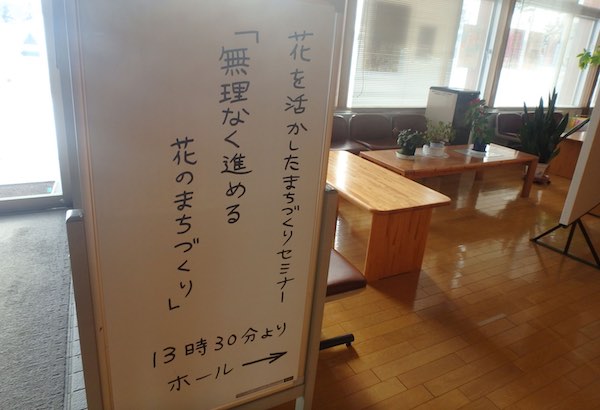 花を活かしたまちづくりセミナー
「無理なく進める
花のまちづくり」
13時30分より
ホール →